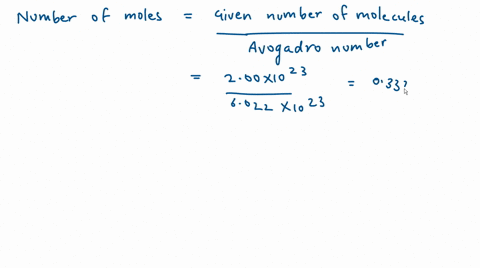 Number of moles = Given number of molecules
Avogadro number
= 2.00×10²³
6.022 ×10²³ = 0.33